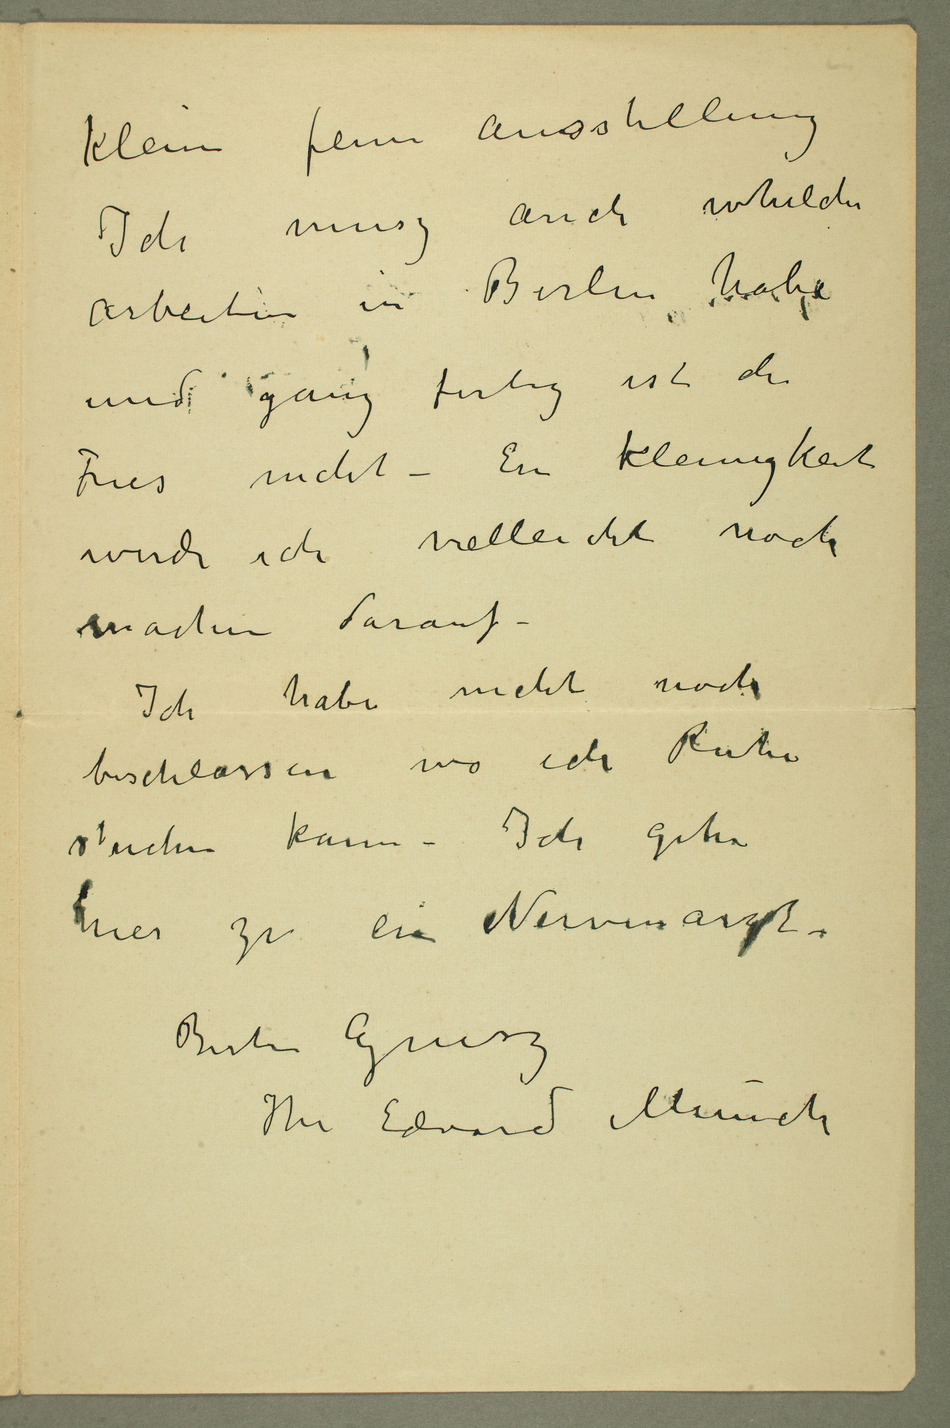 kleine feine Ausstellung
Ich musz auch
arbeiten in Berlin habe
und ganz fertig ist die
Fries nicht – Ein kleinigkeit
werde ich vielleicht noch
machen darauf –
Ich habe nicht noch
beschlossen wo ich Ruhe
suchen kann – Ich gehe
hier zu ein Nervenarzt –
Besten Grusz
Ihr Edvard Munch